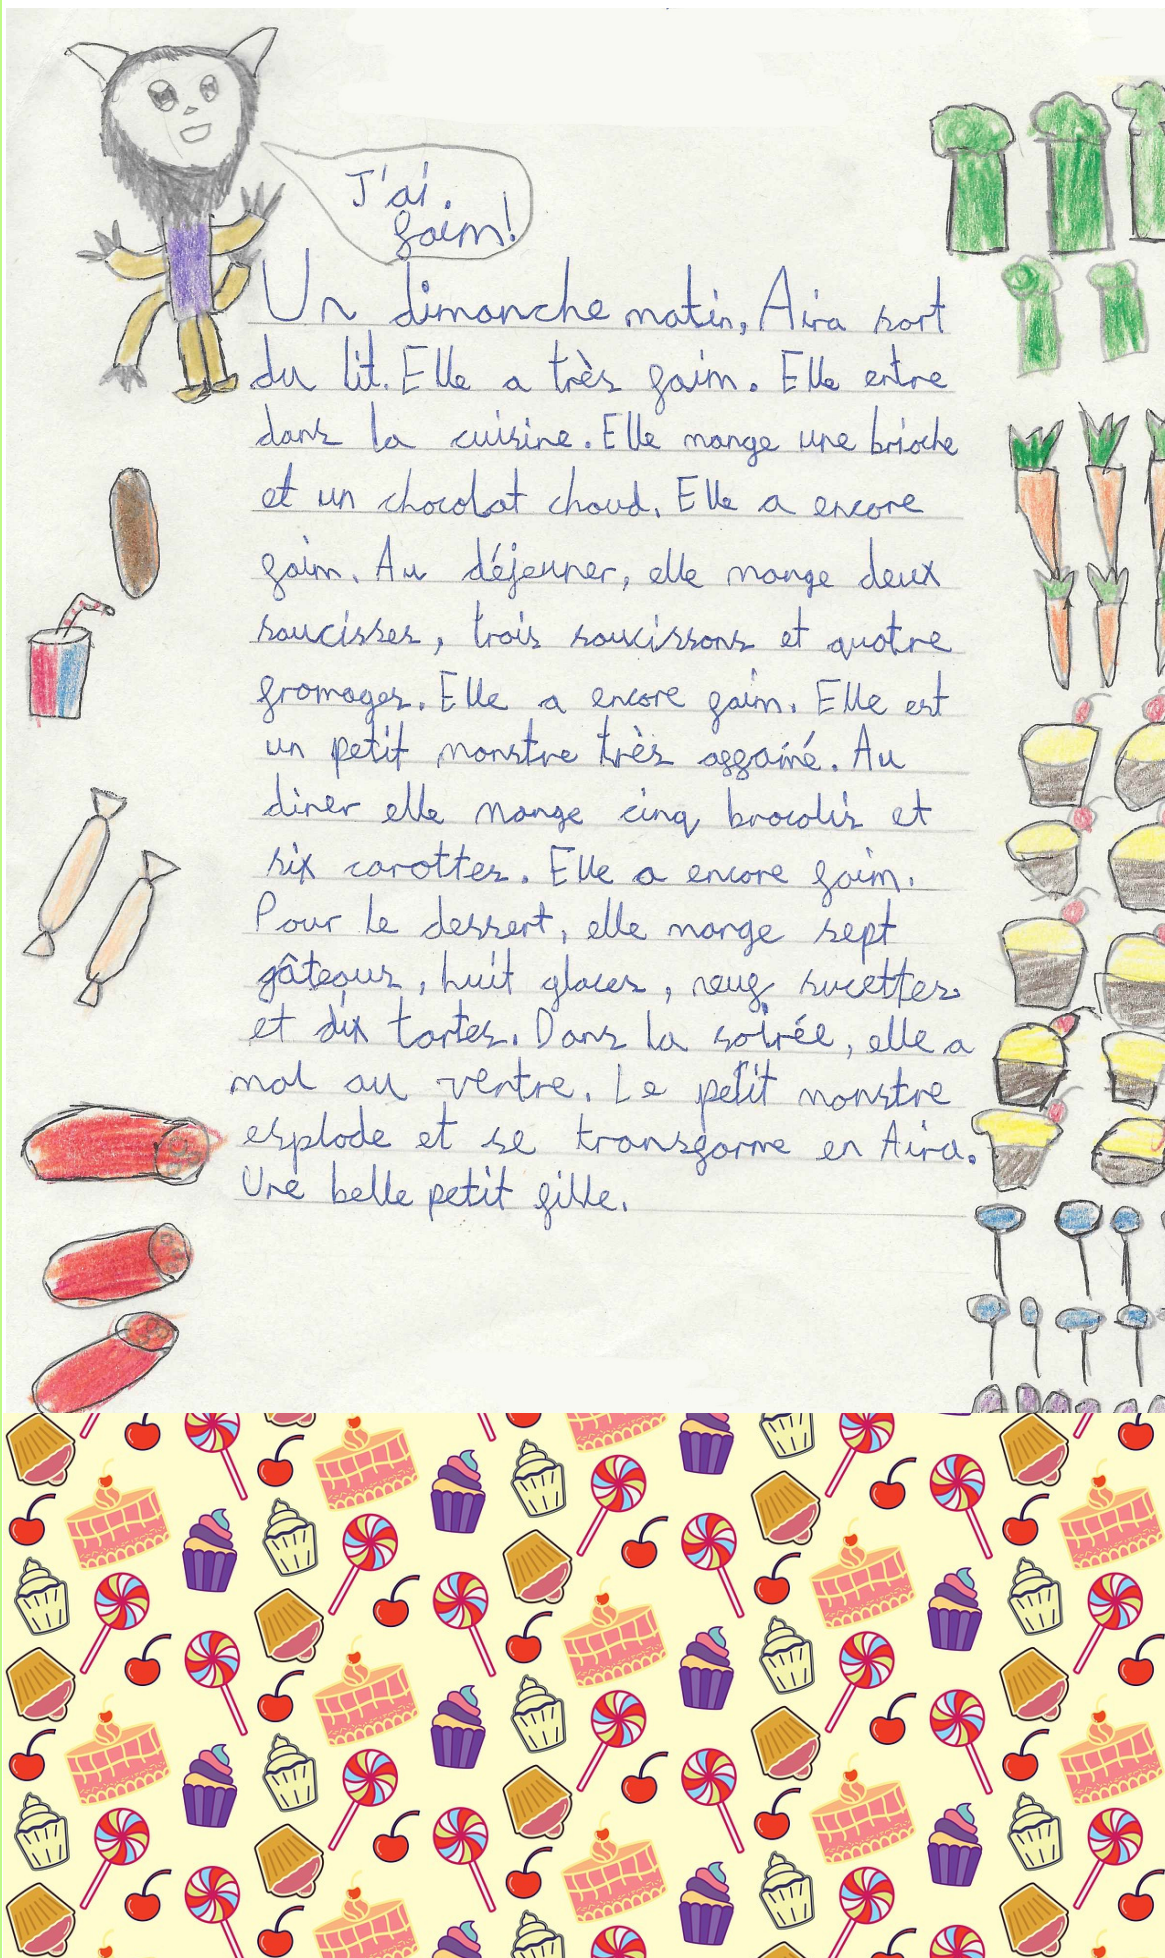 J'ai
faim!
Un dimanche matin, Aira sort
du lit. Elle a très faim. Elle entre
dans la cuisine. Elle mange une brioche
et un chocolat chaud. Elle a encore
faim. Au déjeuner, elle mange deux
saucisses, trois saucissons et quatre
fromages. Elle a encore faim. Elle est
un petit monstre très affamé. Au
diner elle mange cinq brocolis et
six carottes. Elle a encore faim.
Pour le dessert, elle mange sept
gâteaux, huit glaces, neuf sucettes
et dix tartes. Dans la soirée, elle a
mal au ventre. Le petit monstre
esplode et se transforme en Aira.
Une belle petit fille.